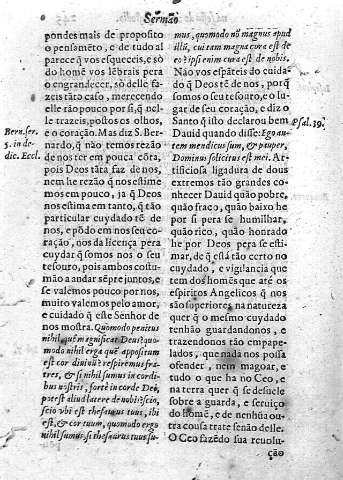 Sermão
pondes mais de proposito
o pensamẽto, e de tudo al
parece q̃ vos esqueceis, e só
do homẽ vos lẽbrais pera
o engrandecer, só delle fa-
zeis tãto caso, merecendo
elle tão pouco por si, q̃ nel-
le trazeis postos os olhos,
e o coração. Mas diz S. Ber-
nardo, q̃ não temos rezão
de nos ter em pouca cõta,
pois Deos tãta faz de nos,
nem he rezão q̃ nos estime
mos em pouco, ja q̃ Deos
nos estima em tanto, q̃ tão
particular cuydado tẽ de
nos, e põdo em nos seu co-
ração, nos da licença pera
cuydar q̃ somos nos o seu
tesouro, pois ambos costu-
mão a andar sẽpre juntos, e
se valemos pouco por nos,
muito valemos pelo amor,
e cuidado q̃ este Senhor de
nos mostra. Quomodo penitus
nihil, quẽ magnificat Deus? quo
modo nihil erga quẽ appositum
est cor diuinũ? respiremus fra-
tres, & si nihil sumus in cordi-
bus nostris, fortè in corde Dei,
potest aliud latere de nobis? scio,
scio vbi est thesaurus tuus, ibi
est, & cor tuum, quomodo ergo
nihil sumus, si thesaurus tuus su-
Bern. ser.
5. in de-
dic. Eccl.
mus, quomodo nõ magnus apud
illũ, cui tam magna cura est de
eo? ipsi enim cura est de nobis.
Não vos espãteis do cuida-
do q̃ Deos tẽ de nos, por q̃
somos o seu tesouro, e o lu-
gar de seu coração, e diz o
Santo q̃ isto declarou bem
Dauid quando disse: Ego au-
tem mendicus sum, & pauper,
Dominus solicitus est mei. Ar-
tificiosa ligadura de dous
extremos tão grandes co-
nhecer Dauid quão pobre,
quão fraco, quão baixo he
por si pera se humilhar,
quão rico, quão honrado
he por Deos pera se esti-
mar, de q̃ está tão certo no
cuydado, e vigilancia que
tem dos homẽs que até os
espiritos Angelicos q̃ nos
são superiores na natureza
quer q̃ o mesmo cuydado
tenhão guardandonos, e
trazendonos tão empape-
lados, que nada nos possa
ofender, nem magoar, e
tudo o que ha no Ceo, e
na terra quer q̃ se desuele
sobre a guarda, e seruiço
do homẽ, e de nenhũa ou-
tra cousa trate senão delle.
O Ceo fazẽdo sua reuolu-
ção
Psal. 39.